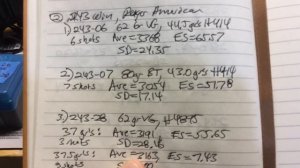 ② .243 Win, Ruger American
1) 243-06 62 gr VG, 44.5 grs H414
6 shots Ave = 3768 ES = 65.57
SD = 24.35
2) 243-07 80gr BT, 43.0 grs H414
7 shots Ave = 3054 ES = 51.78
SD = 17.14
3.) 243-28 62 gr VG,
37 grs: Ave = 3191 ES = 55.65
3 shots SD = 28.16
37.5 grs: Ave = 3163, ES = 7.43
3 shots